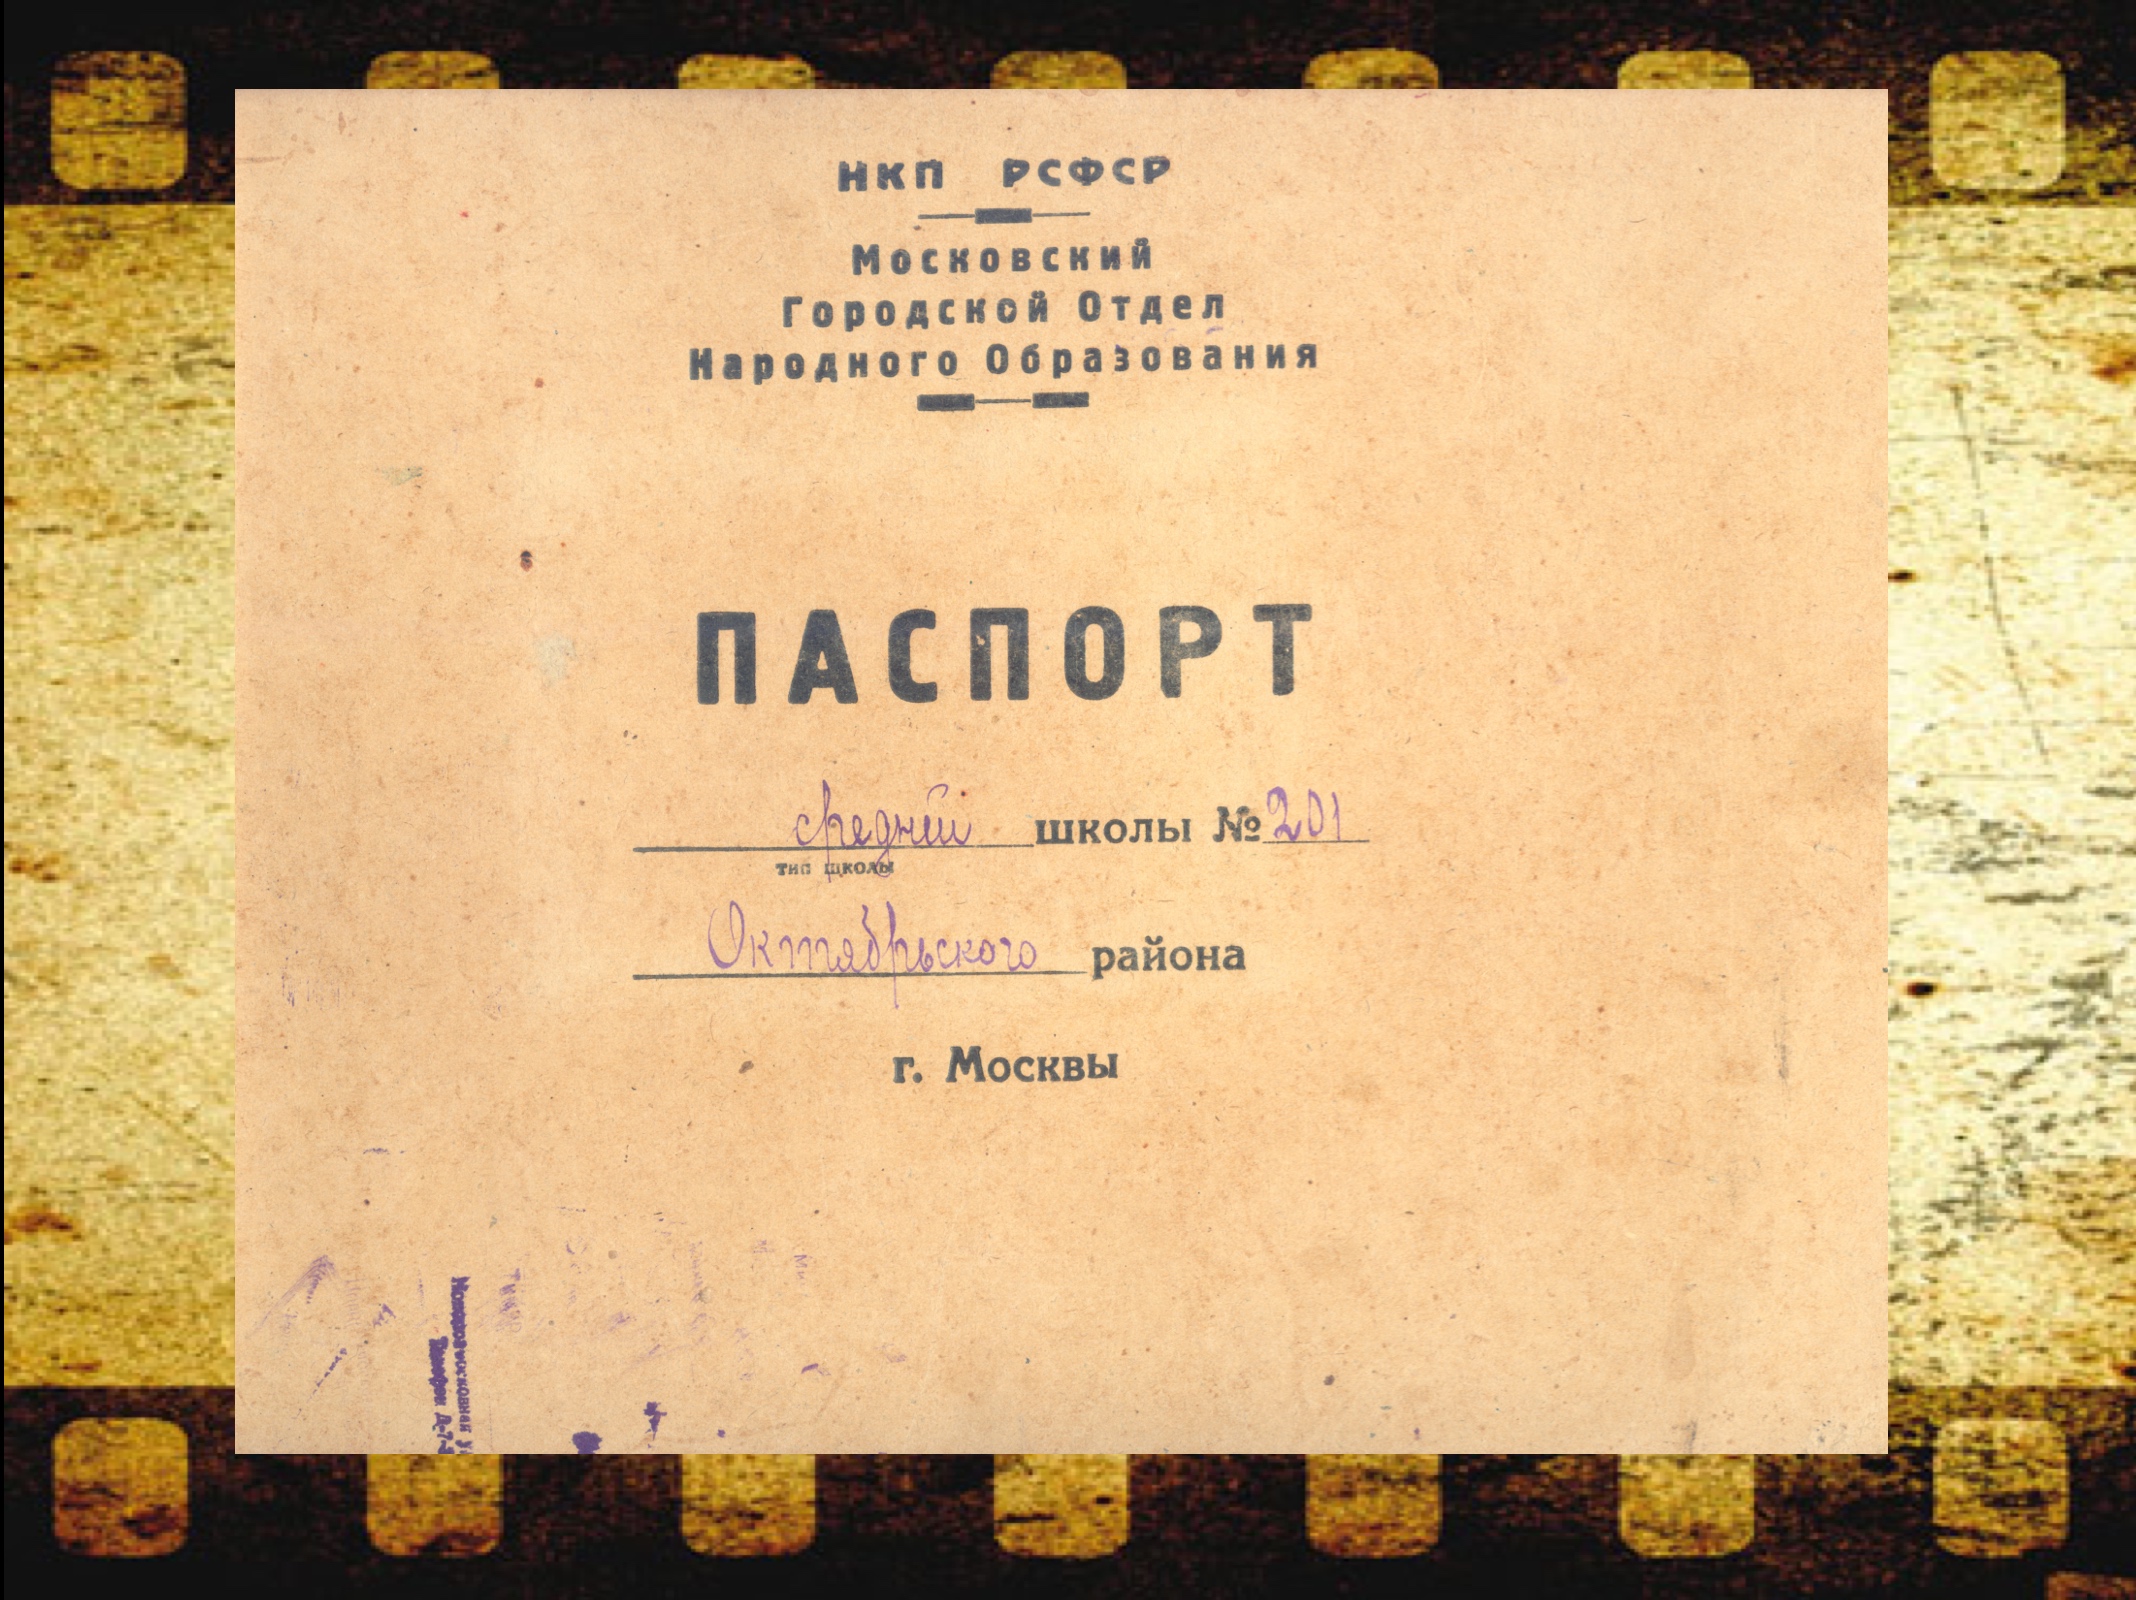 НКП РСФСР
Московский
Городской Отдел
Народного Образования
ПАСПОРТ
средней школы № 201
тип школы
Октябрьского района
г. Москвы